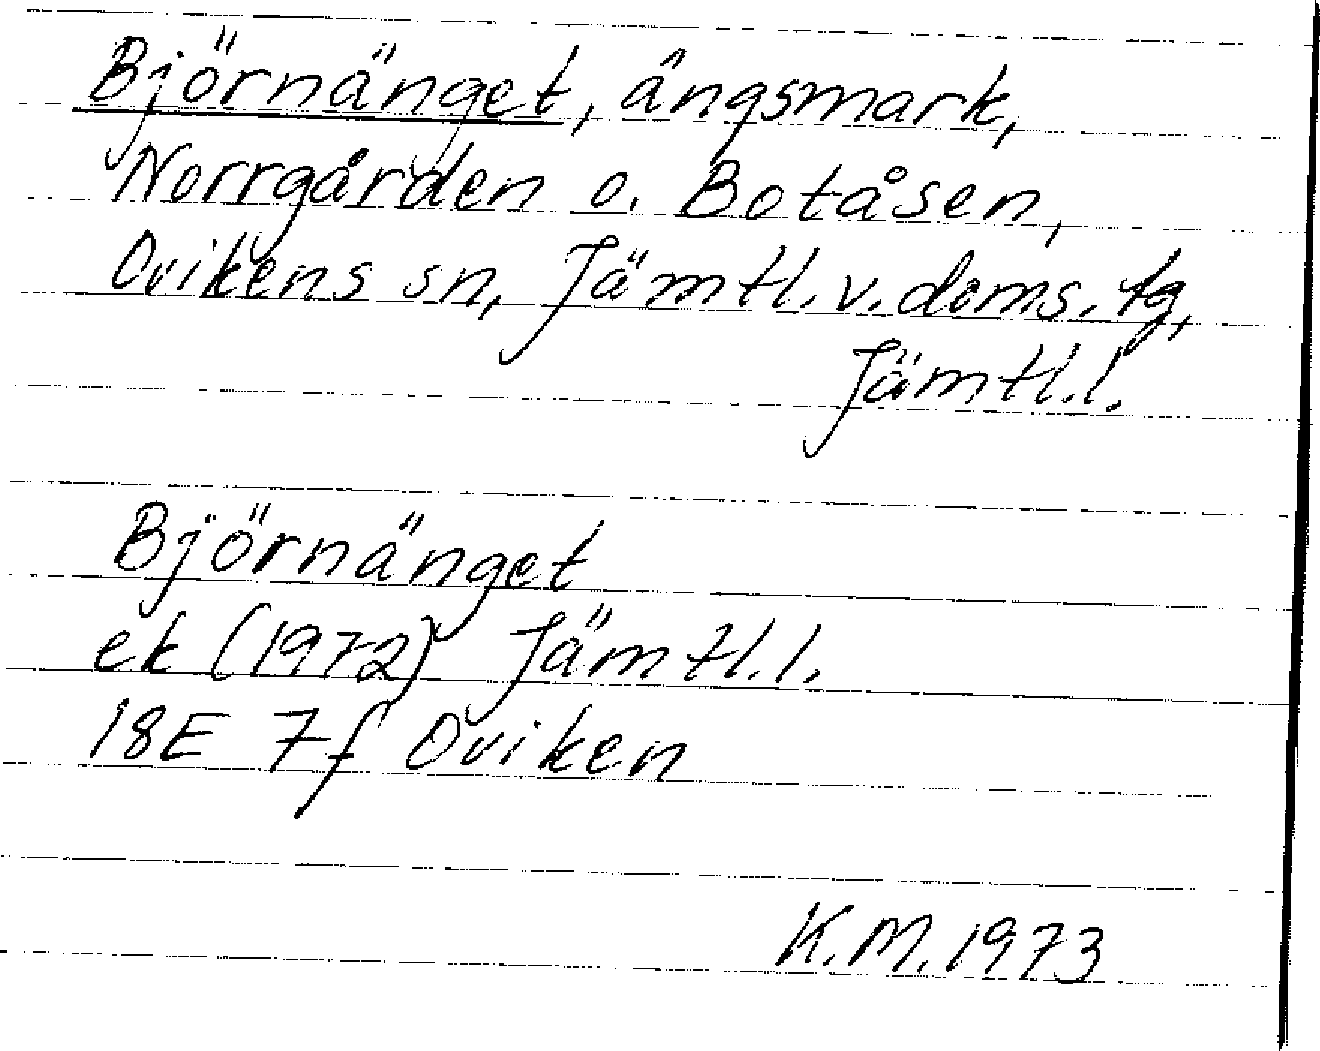 Björnänget, ängsmark,
Norrgården o. Botåsen,
Ovikens sn, Jämtl. v. doms. tg,
Jämtl. l.
Björnänget
ek (1972) Jämtl. l.
18E 7f Oviken
K.M. 1973